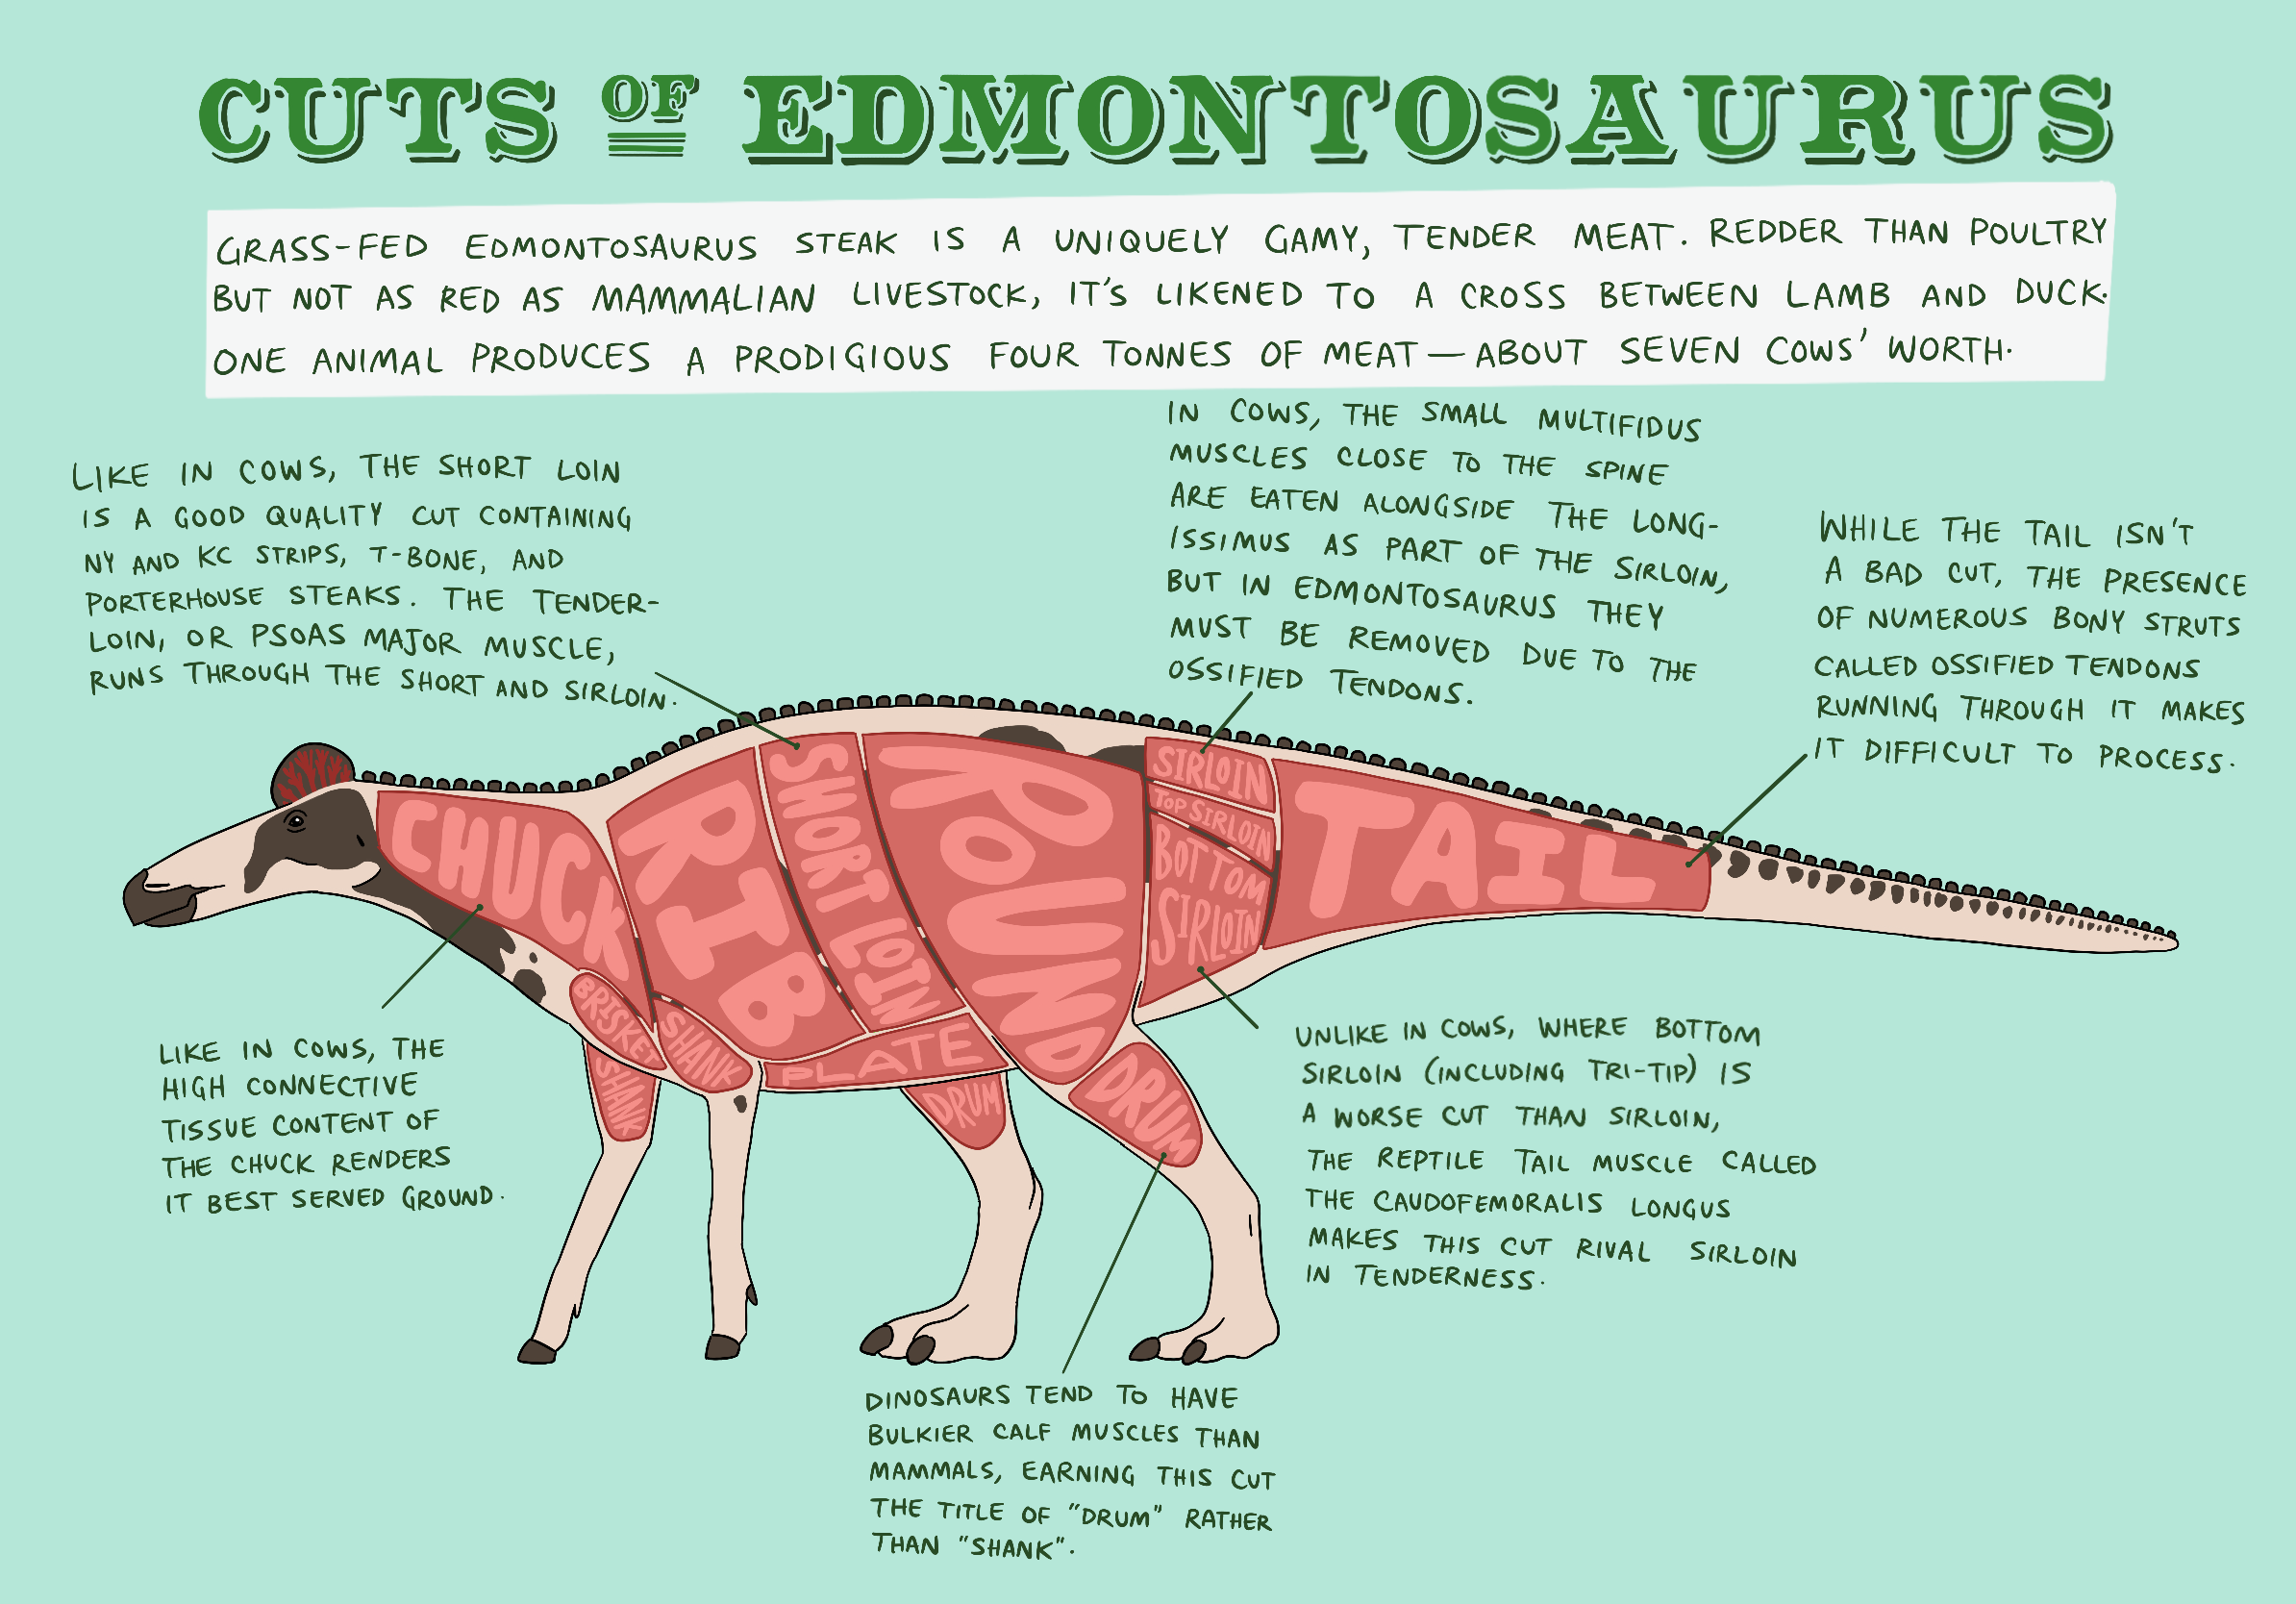 CUTS OF EDMONTOSAURUS
GRASS-FED EDMONTOSAURUS STEAK IS A UNIQUELY GAMY, TENDER MEAT. REDDER THAN POULTRY
BUT NOT AS RED AS MAMMALIAN LIVESTOCK, IT'S LIKENED TO A CROSS BETWEEN LAMB AND DUCK.
ONE ANIMAL PRODUCES A PRODIGIOUS FOUR TONNES OF MEAT — ABOUT SEVEN COWS' WORTH.
LIKE IN COWS, THE SHORT LOIN
IS A GOOD QUALITY CUT CONTAINING
NY AND KC STRIPS, T-BONE, AND
PORTERHOUSE STEAKS. THE TENDER-
LOIN, OR PSOAS MAJOR MUSCLE,
RUNS THROUGH THE SHORT AND SIRLOIN.
IN COWS, THE SMALL MULTIFIDUS
MUSCLES CLOSE TO THE SPINE
ARE EATEN ALONGSIDE THE LONG-
ISSIMUS AS PART OF THE SIRLOIN,
BUT IN EDMONTOSAURUS THEY
MUST BE REMOVED DUE TO THE
OSSIFIED TENDONS.
WHILE THE TAIL ISN'T
A BAD CUT, THE PRESENCE
OF NUMEROUS BONY STRUTS
CALLED OSSIFIED TENDONS
RUNNING THROUGH IT MAKES
IT DIFFICULT TO PROCESS.
CHUCK
RIB
SHORT LOIN
ROUND
SIRLOIN
TOP SIRLOIN
BOTTOM
SIRLOIN
TAIL
BRISKET
SHANK
SHANK
PLATE
DRUM
DRUM
LIKE IN COWS, THE
HIGH CONNECTIVE
TISSUE CONTENT OF
THE CHUCK RENDERS
IT BEST SERVED GROUND.
UNLIKE IN COWS, WHERE BOTTOM
SIRLOIN (INCLUDING TRI-TIP) IS
A WORSE CUT THAN SIRLOIN,
THE REPTILE TAIL MUSCLE CALLED
THE CAUDOFEMORALIS LONGUS
MAKES THIS CUT RIVAL SIRLOIN
IN TENDERNESS.
DINOSAURS TEND TO HAVE
BULKIER CALF MUSCLES THAN
MAMMALS, EARNING THIS CUT
THE TITLE OF "DRUM" RATHER
THAN "SHANK".